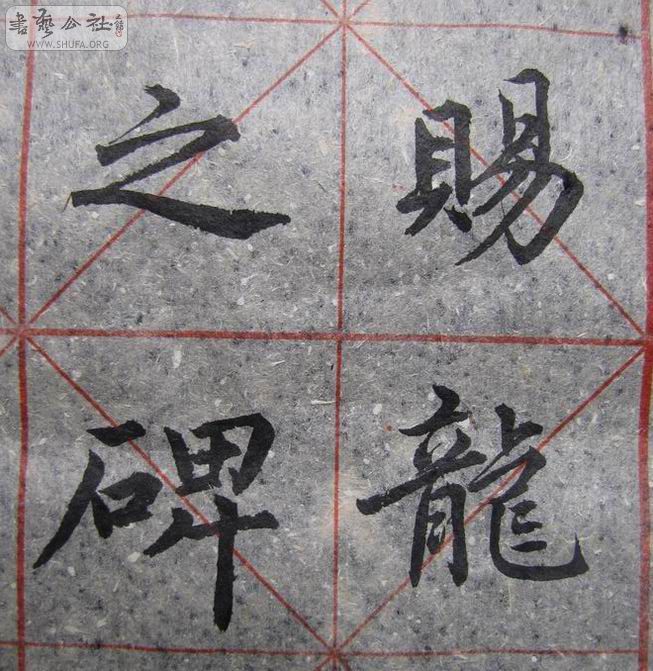 賜龍
之碑
書藝公社
WWW.SHUFA.ORG